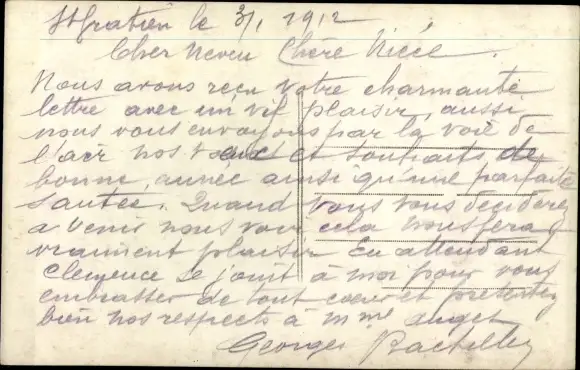 St gratien le 3/1 1912
Cher Neveu Chère Nièce.
Nous avons reçu votre charmante
lettre avec un vif plaisir, aussi
nous vous envoyons par la voie de
l'air nos et souhaits de
bonne, année ainsi qu'une parfaite
santée. Quand vous vous déciderez
a venir nous voir cela nous fera
vraiment plaisir En attendant
Clémence se joint à moi pour vous
embrasser de tout cœur et présentez
bien nos respects à Mme
Georges